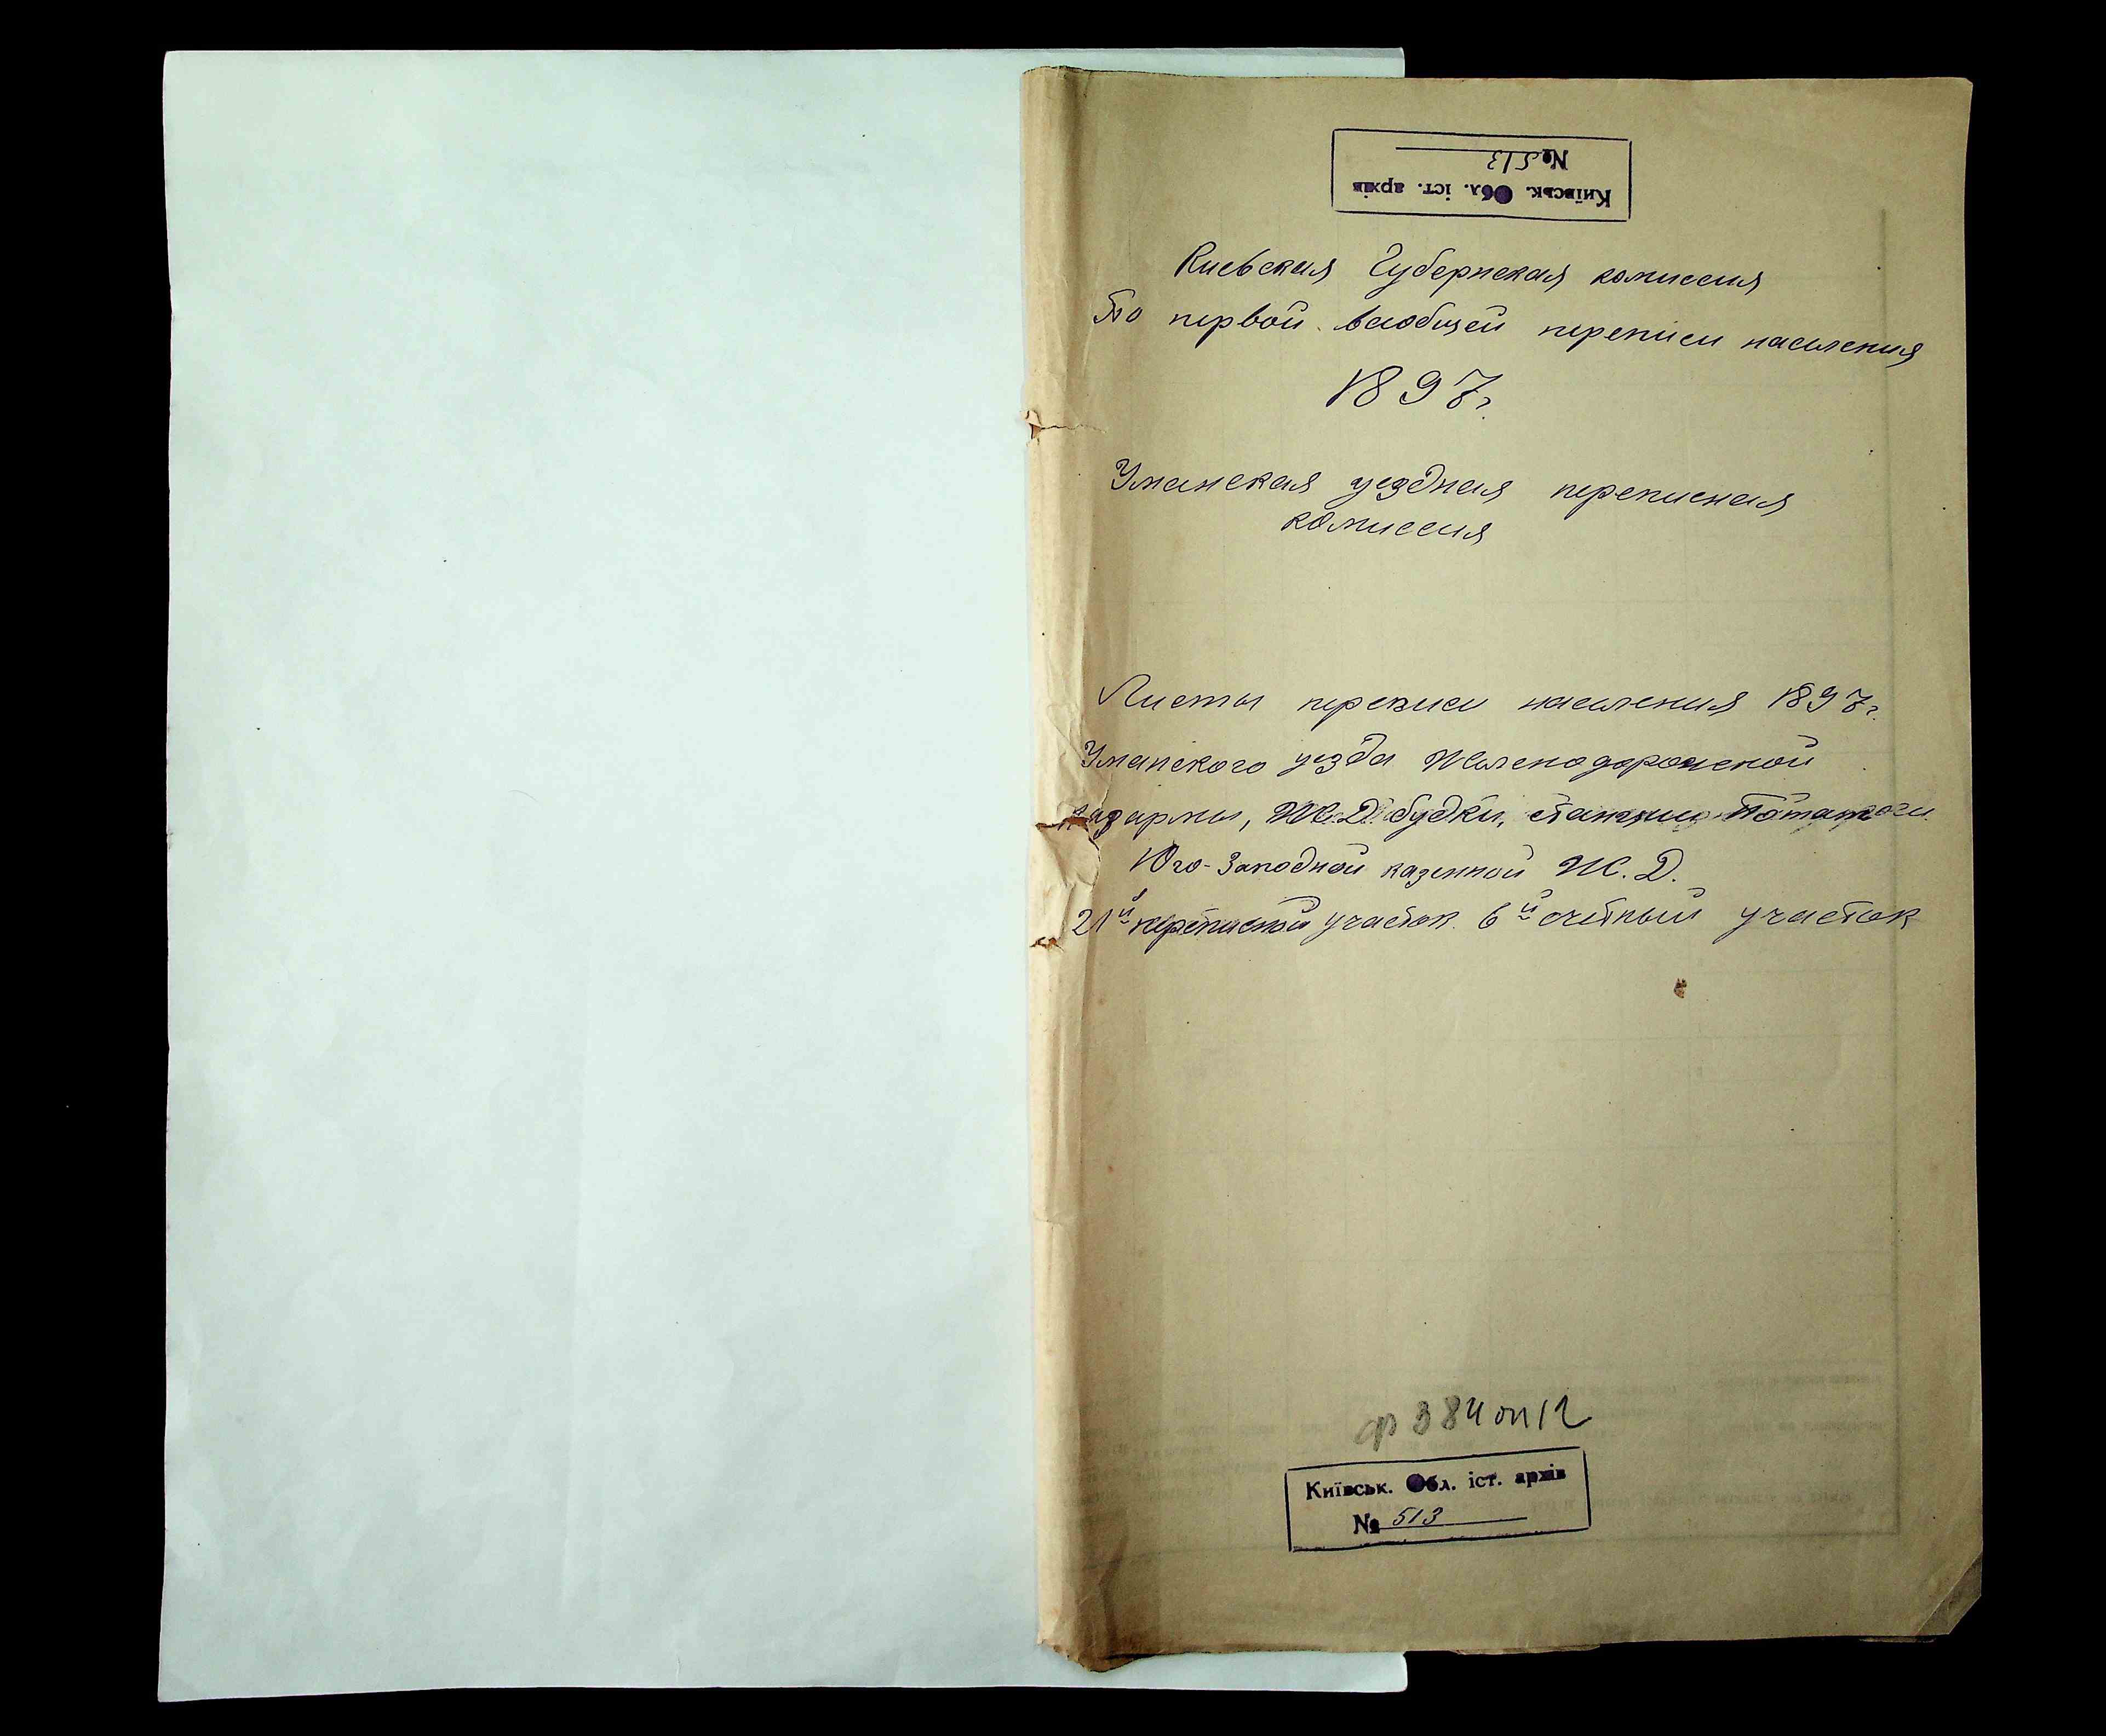 Київськ. Обл. іст. архів
№ 513
Киевская Губернская комиссия
По первой всеобщей переписи населения
1897 г.
Уманская уездная переписная
комиссия
Листы переписи населения 1897 г.
Уманского уезда Железнодорожной
казармы, Ж.Д. будки, станции
Юго-Западной казенной Ж.Д.
21й переписной участок 6й счётный участок
ф 384 оп 12
Київськ. Обл. іст. архів
№ 513